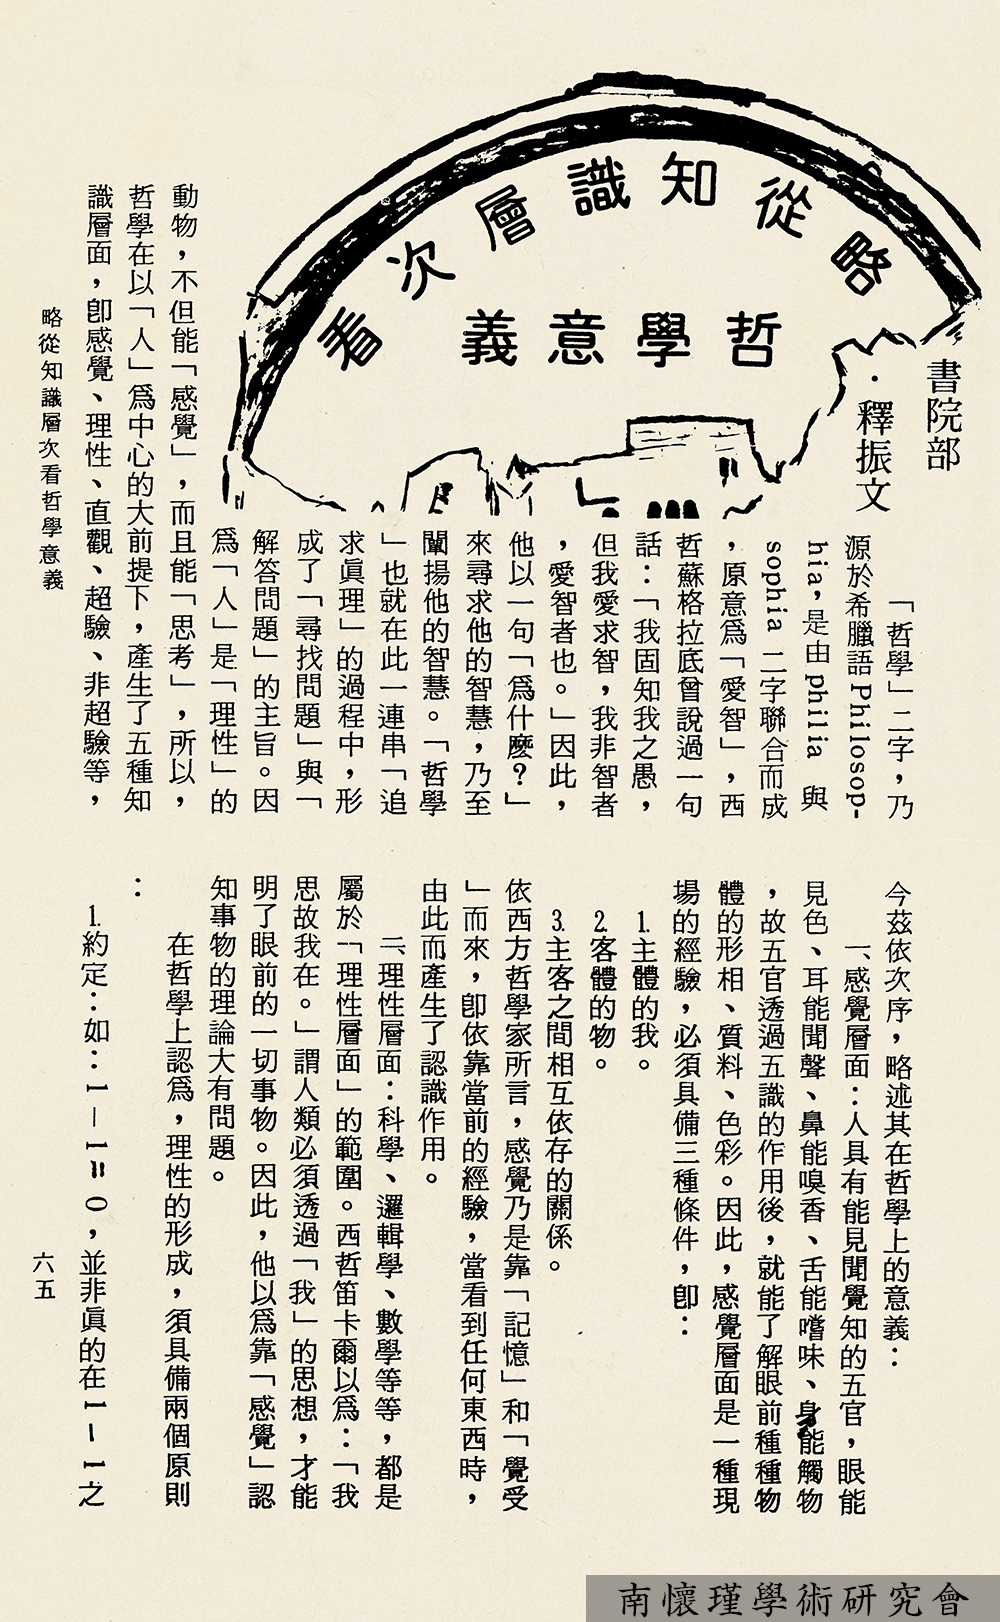 略從知識層次看
哲學意義
書院部
·釋振文
「哲學」二字，乃
源於希臘語Philosop-
hia，是由philia 與
sophia 二字聯合而成
，原意爲「愛智」，西
哲蘇格拉底曾說過一句
話：「我固知我之愚，
但我愛求智，我非智者
，愛智者也。」因此，
他以一句「爲什麼？」
來尋求他的智慧，乃至
闡揚他的智慧。「哲學
」也就在此一連串「追
求眞理」的過程中，形
成了「尋找問題」與「
解答問題」的主旨。因
爲「人」是「理性」的
動物，不但能「感覺」，而且能「思考」，所以，
哲學在以「人」爲中心的大前提下，產生了五種知
識層面，卽感覺、理性、直觀、超驗、非超驗等，
今茲依次序，略述其在哲學上的意義：
一、感覺層面：人具有能見聞覺知的五官，眼能
見色、耳能聞聲、鼻能嗅香、舌能嚐味、身能觸物
，故五官透過五識的作用後，就能了解眼前種種物
體的形相、質料、色彩。因此，感覺層面是一種現
場的經驗，必須具備三種條件，卽：
1.主體的我。
2.客體的物。
3.主客之間相互依存的關係。
依西方哲學家所言，感覺乃是靠「記憶」和「覺受
」而來，卽依靠當前的經驗，當看到任何東西時，
由此而產生了認識作用。
二、理性層面：科學、邏輯學、數學等等，都是
屬於「理性層面」的範圍。西哲笛卡爾以爲：「我
思故我在。」謂人類必須透過「我」的思想，才能
明了眼前的一切事物。因此，他以爲靠「感覺」認
知事物的理論大有問題。
在哲學上認爲，理性的形成，須具備兩個原則
：
1.約定：如：1－1＝0，並非眞的在1－1之
略從知識層次看哲學意義
六五
南懷瑾學術研究會